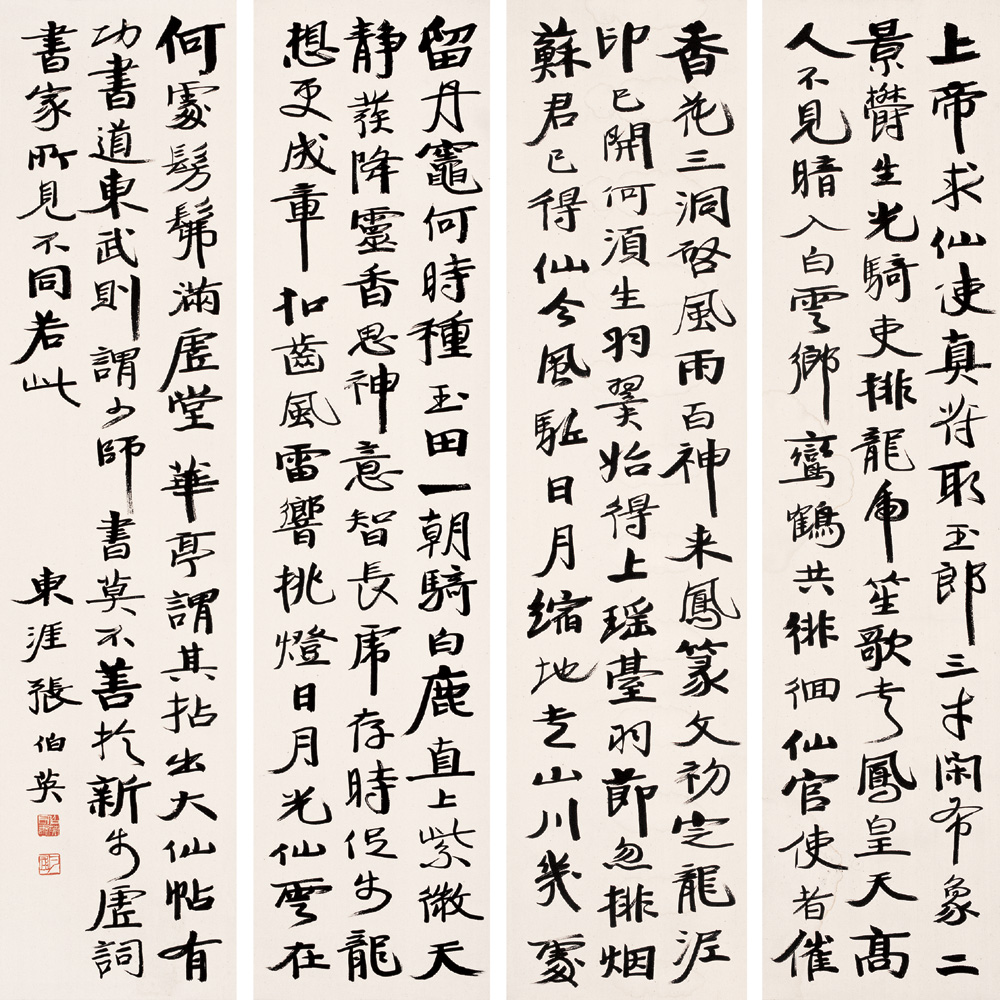 上帝求仙使真符取玉郎三才閑布象二
景鬱生光騎吏排龍虎笙歌走鳳皇天高
人不見暗入白雲鄉鸞鶴共徘徊仙官使者催
香花三洞啓風雨百神来鳳篆文初定龍泥
印已開何須生羽翼始得上瑶臺羽節忽排烟
蘇君已得仙令風駈日月縮地走山川幾處
留丹竈何時種玉田一朝騎白鹿直上紫微天
静發降靈香思神意智長虎存時促步龍
想更成章扣齒風雷響挑燈日月光仙雲在
何處髣髴滿虚堂華亭謂其拈出大仙帖有
功書道東武則謂少師書莫不善於新步虚詞
書家所見不同若此
東涯張伯英